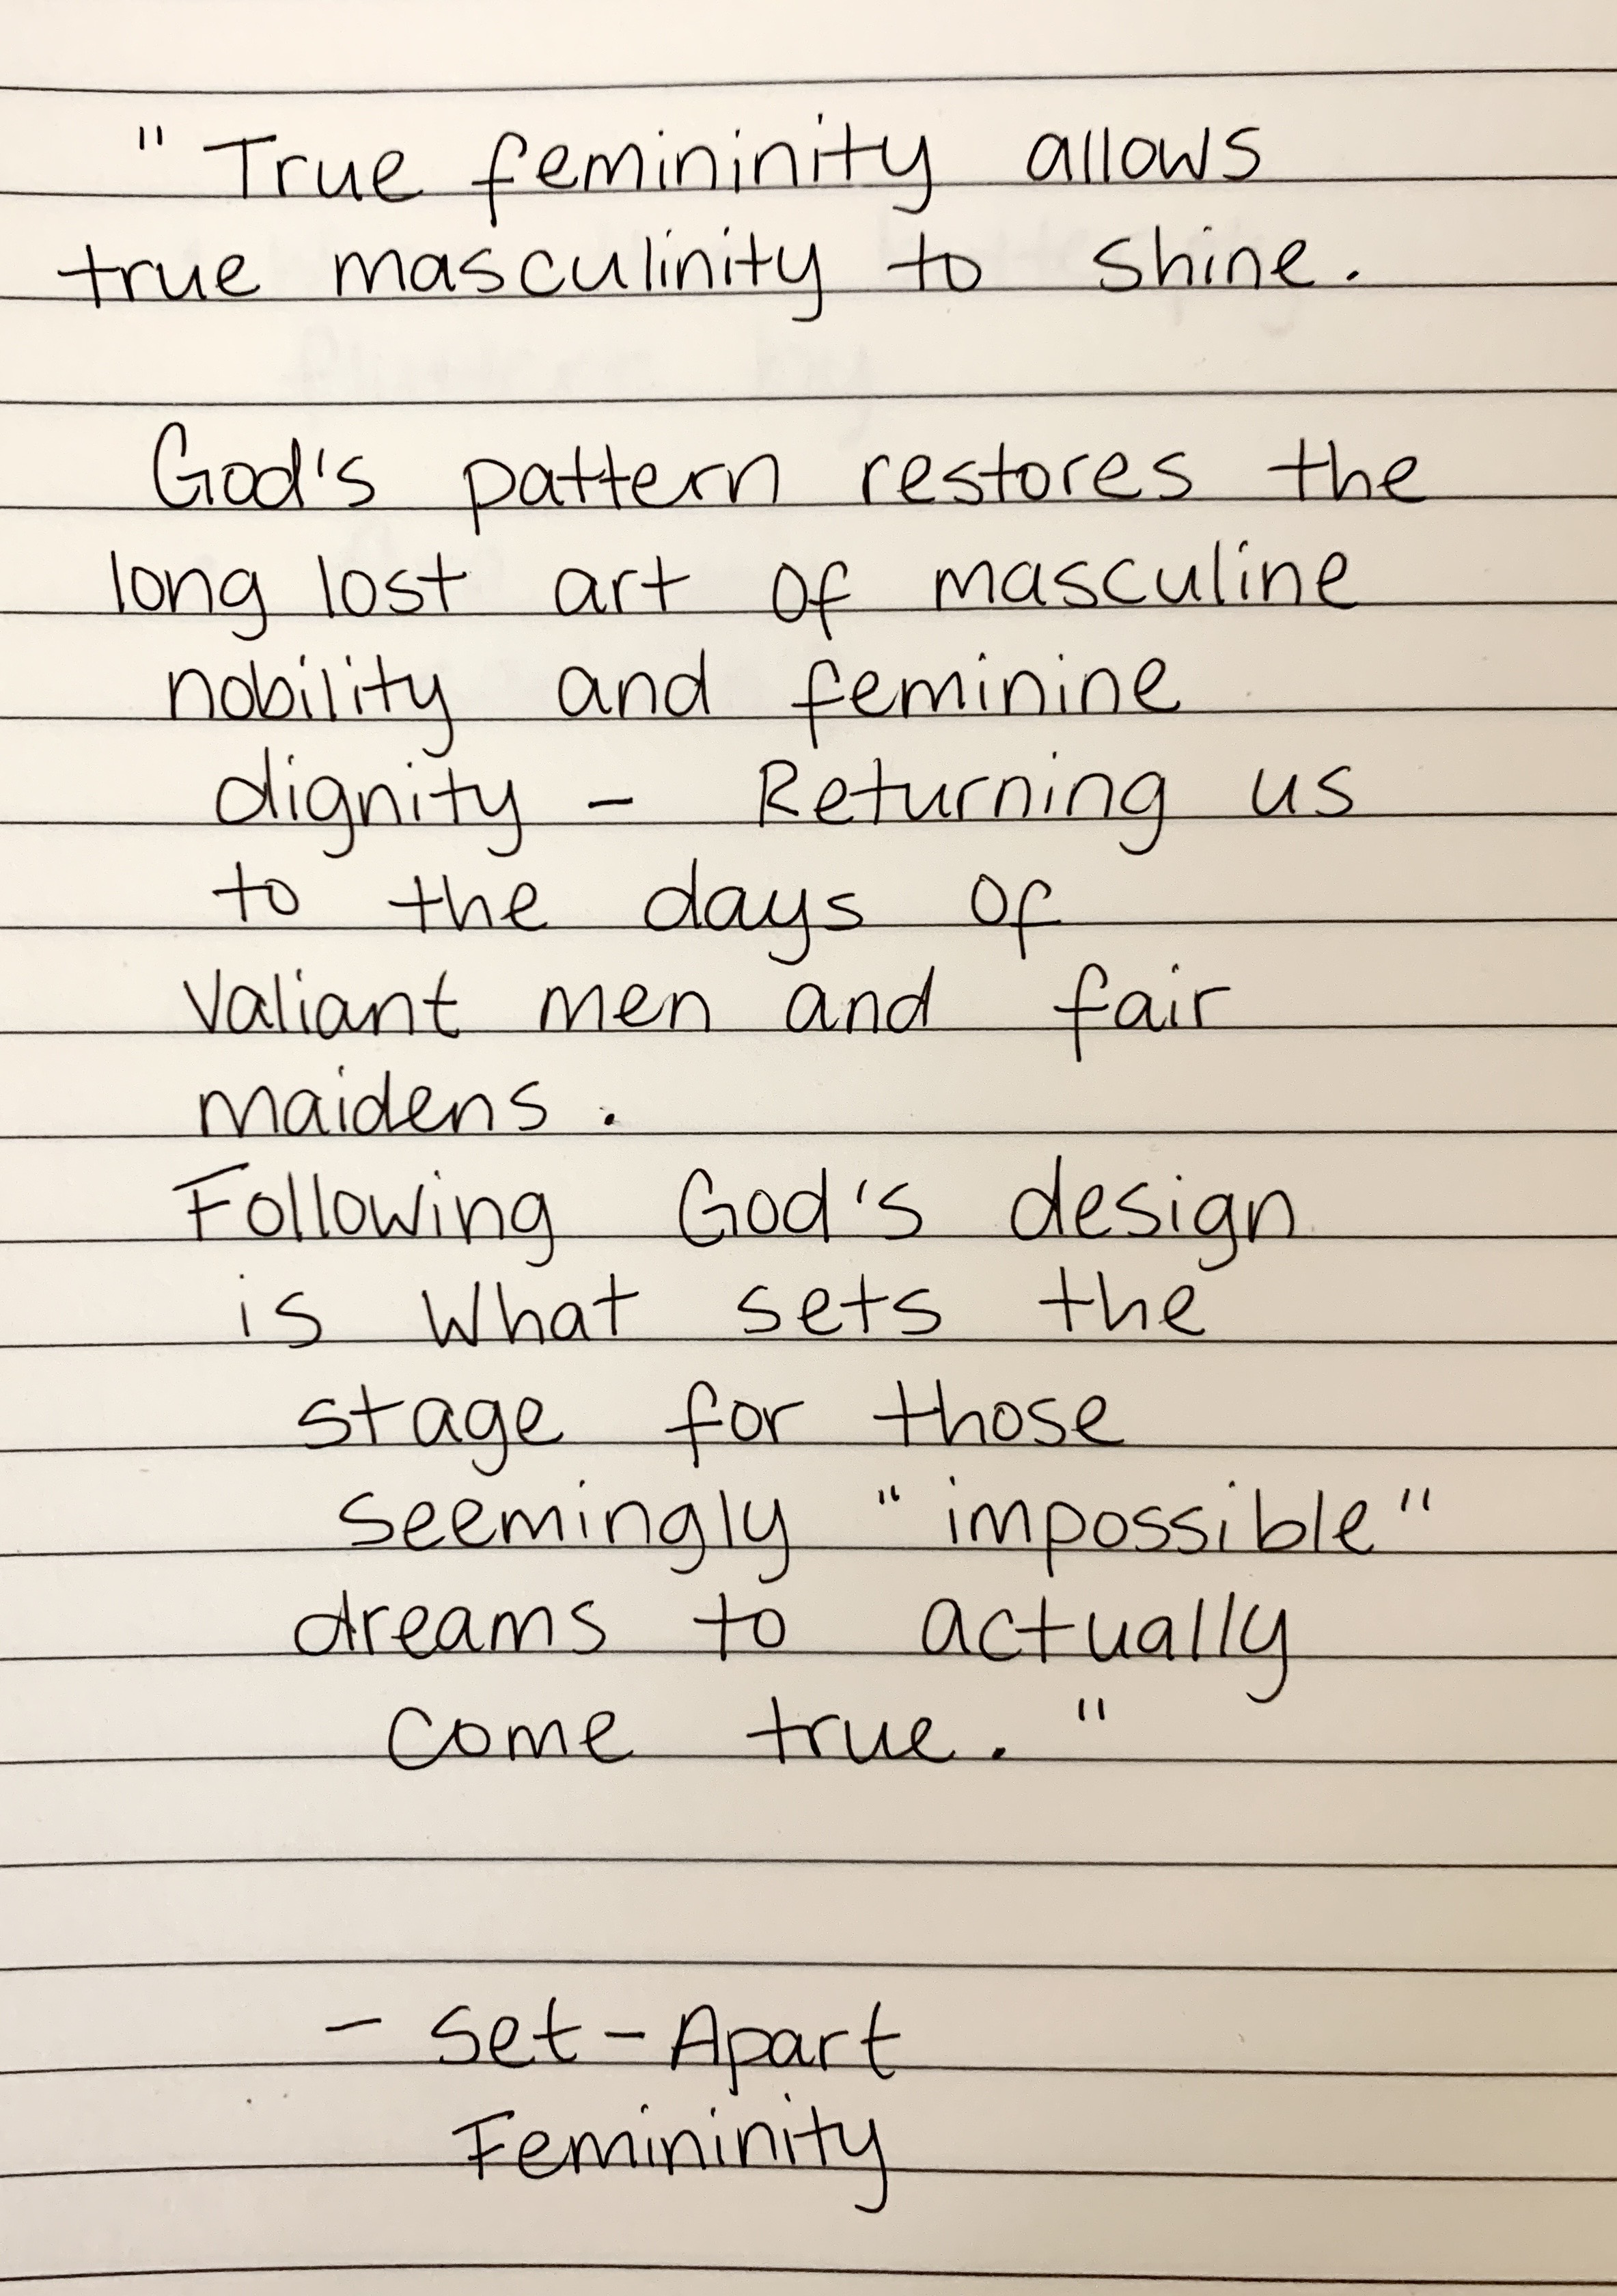 " True femininity allows
true masculinity to shine.
God's pattern restores the
long lost art of masculine
nobility and feminine
dignity - Returning us
to the days of
valiant men and fair
maidens.
Following God's design
is what sets the
stage for those
seemingly "impossible"
dreams to actually
come true."
- Set-Apart
Femininity